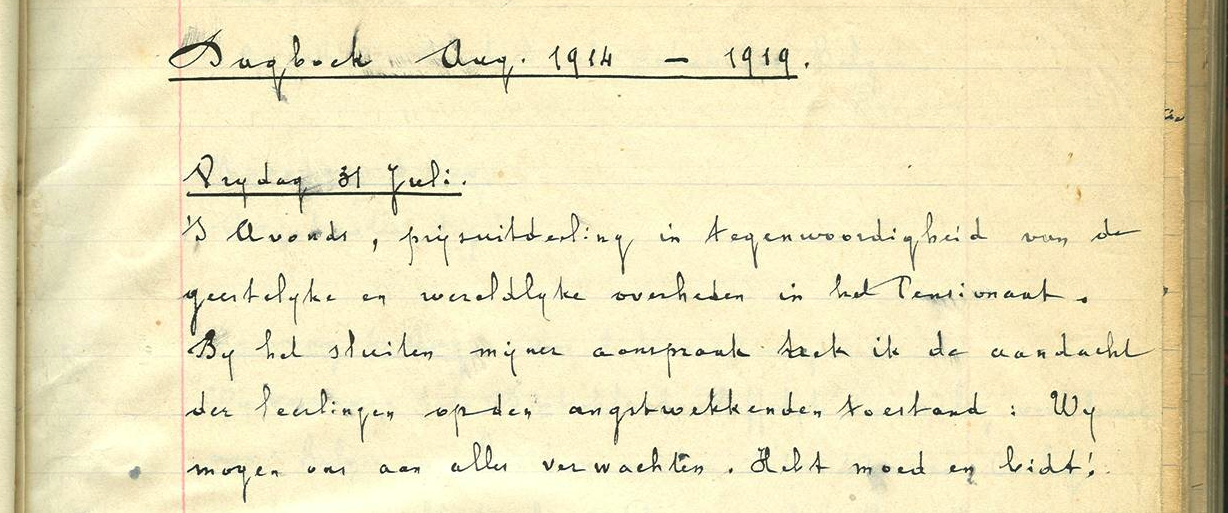 Dagboek Aug. 1914 – 1919.
Vrydag 31 Juli.
'S Avonds, prijsuitdeeling in tegenwoordigheid van de
geestelyke en wereldlyke overheden in het Pensionaat.
By het sluiten mijner aanspraak trek ik de aandacht
der leerlingen op den angstwekkenden toestand : Wy
mogen ons aan alles verwachten. Hebt moed en bidt!